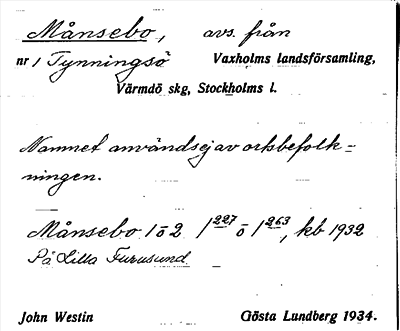 Månsebo, avs. från
nr 1 Tynningsö Vaxholms landsförsamling,
Värmdö skg, Stockholms l.
Namnet användsej av ortsbefolk-
ningen.
Månsebo 1 o 2 1227 o 1263, kb 1932
På Lilla Furusund
John Westin Gösta Lundberg 1934.